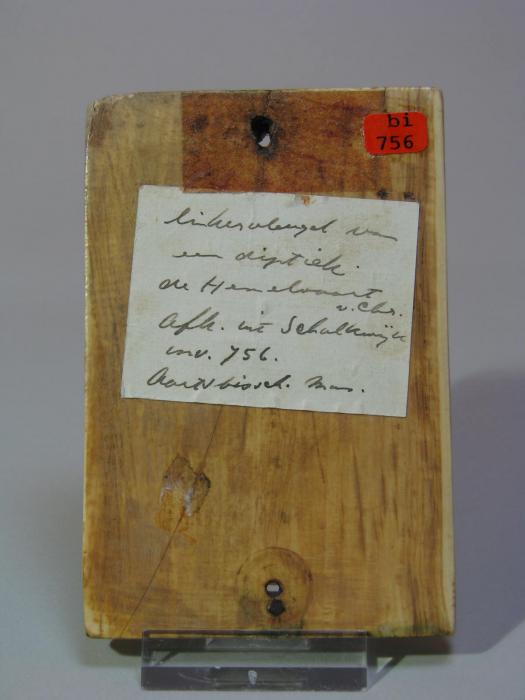 bi
756
linkervleugel van
een diptiek.
de Hemelvaart
v. Chr.
Afk. uit Schalkwijk
inv. 756.
Aartsbissch. Mus.